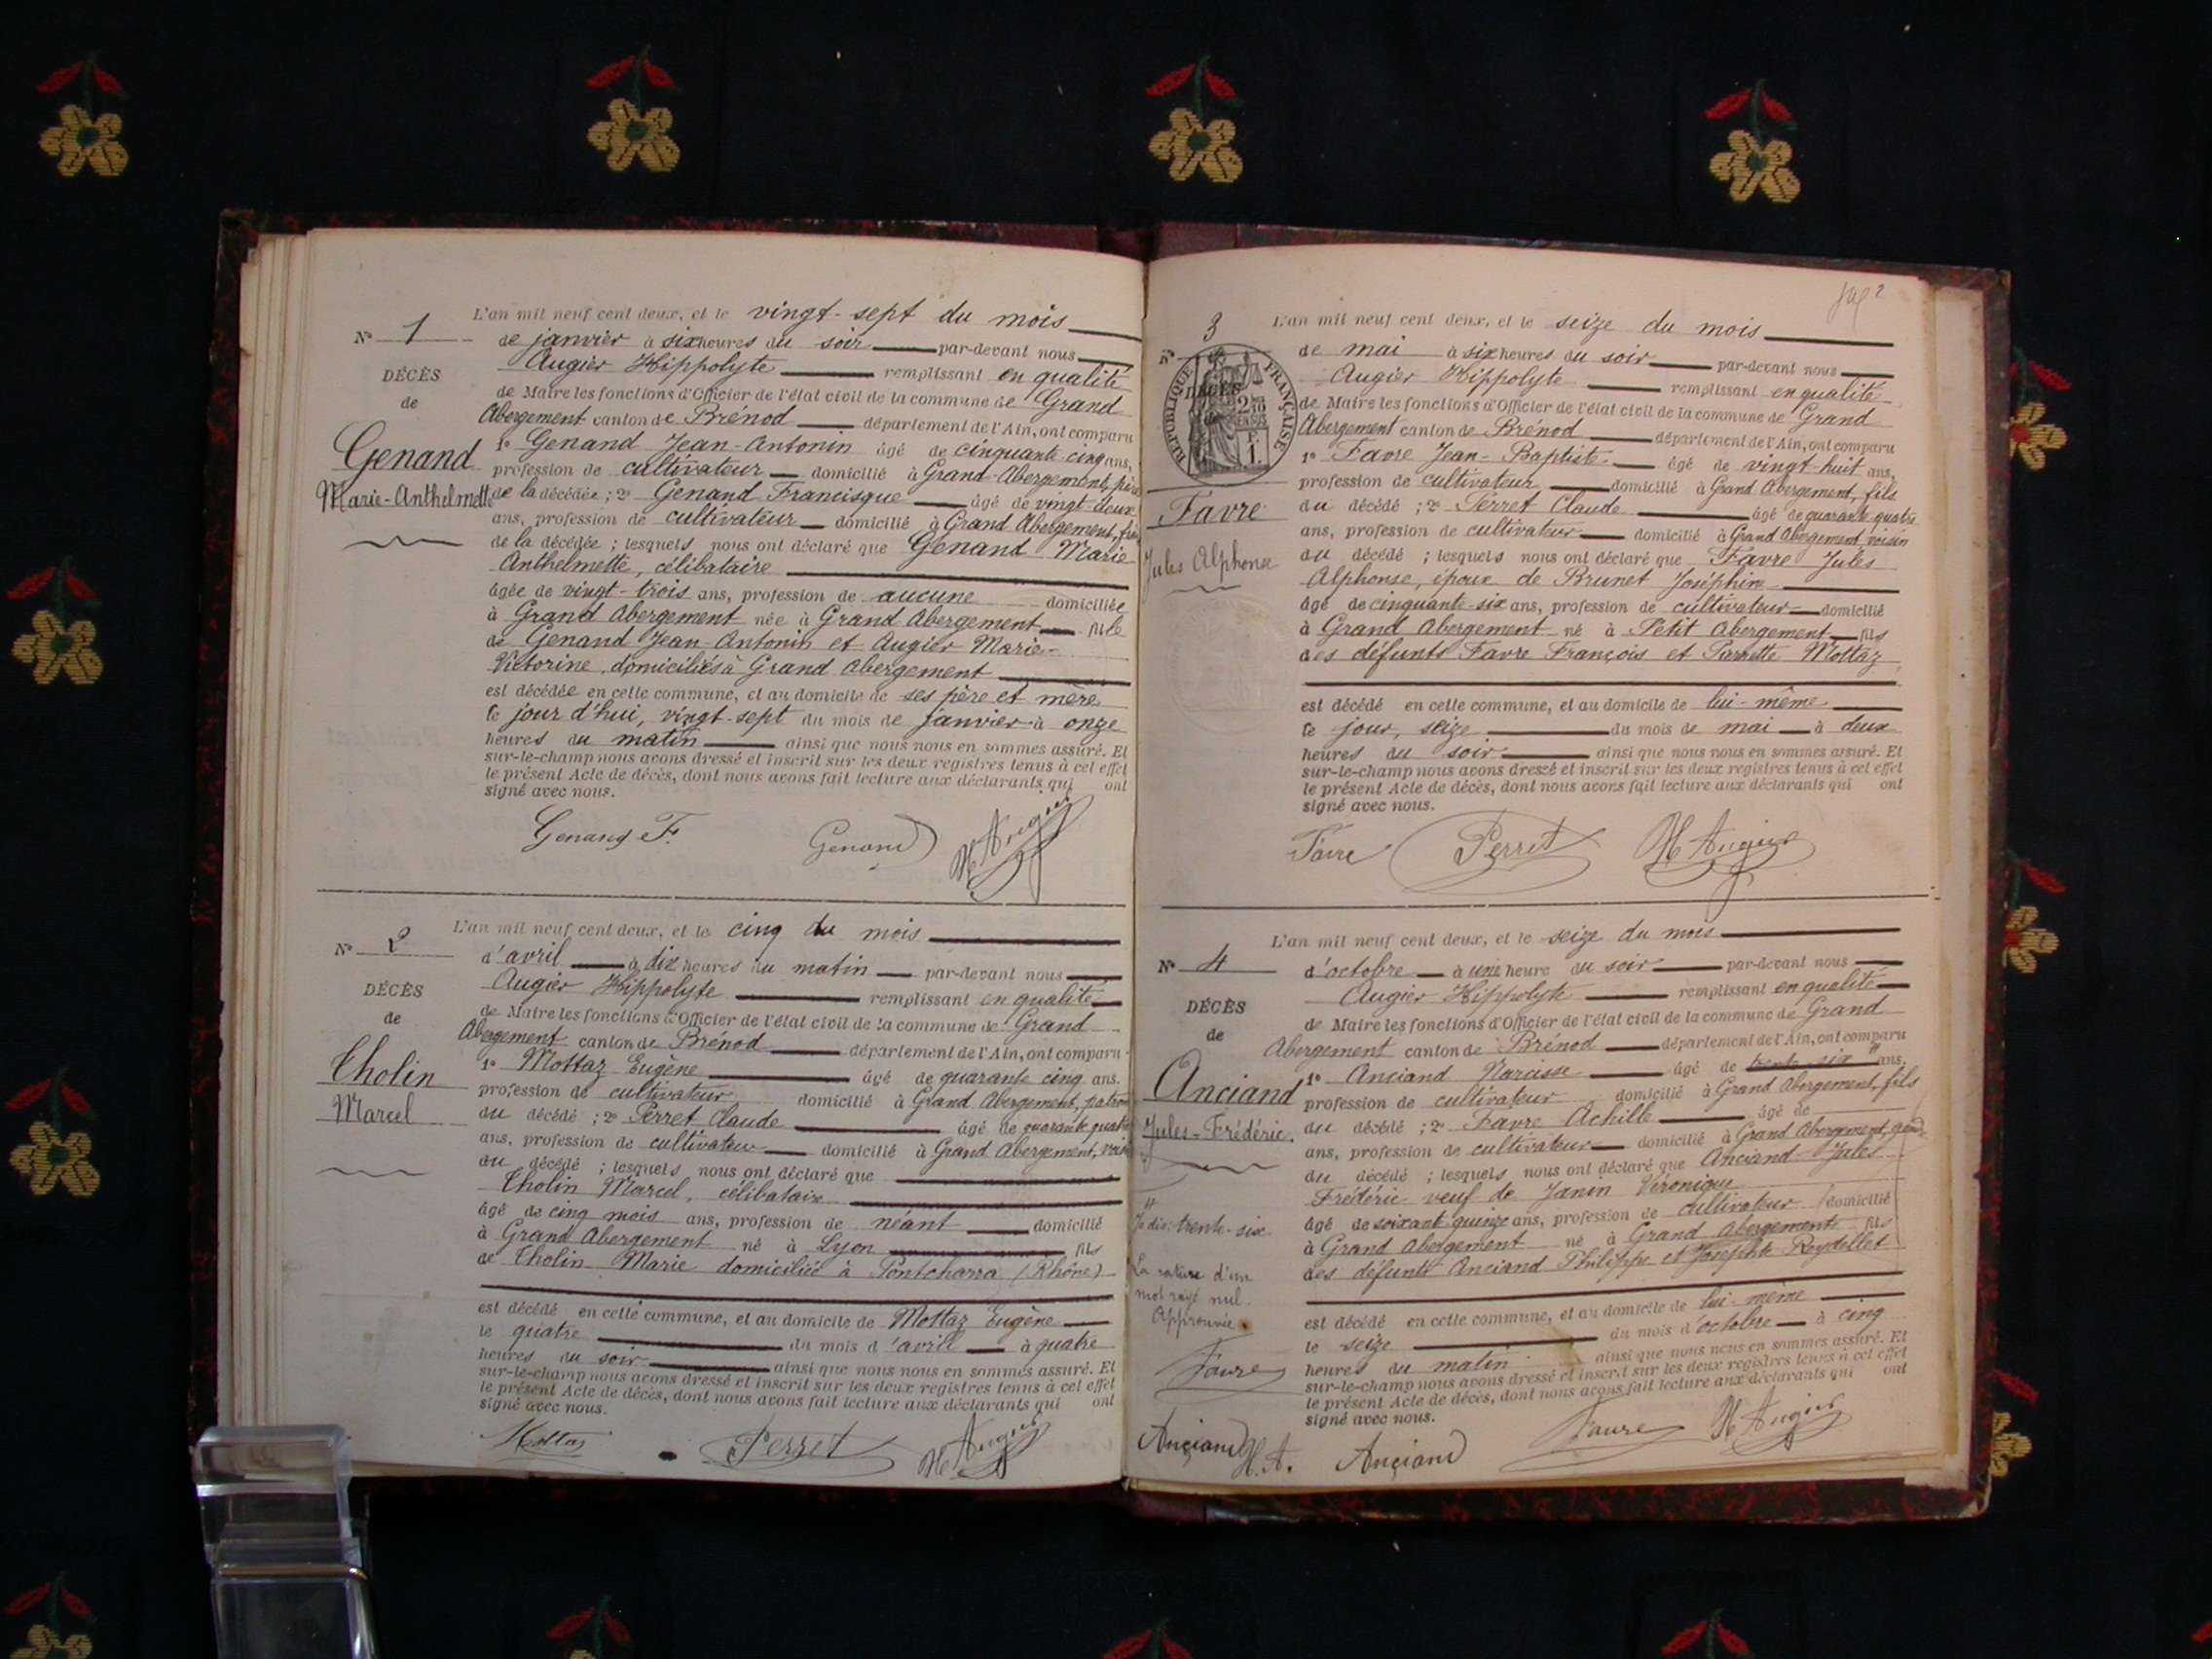 L'an mil neuf cent deux, et le vingt-sept du mois
Nº 1
de janvier à six heures du soir par-devant nous
Augier Hippolyte remplissant en qualité
DÉCÈS
de Maire les fonctions d'Officier de l'état civil de la commune de Grand
de
Abergement canton de Brénod département de l'Ain, ont comparu
1º Genand Jean-Antonin âgé de cinquante cinq ans,
Genand
profession de cultivateur domicilié à Grand-Abergement, père
Marie-Anthelmette
de la décédée ; 2º Genand Francisque âgé de vingt-deux
ans, profession de cultivateur domicilié à Grand Abergement, frère
de la décédée ; lesquels nous ont déclaré que Genand Marie
Anthelmette, célibataire
âgée de vingt-trois ans, profession de aucune domiciliée
à Grand Abergement née à Grand Abergement fille
de Genand Jean-Antonin et Augier Marie-
Victorine, domiciliés à Grand Abergement
est décédée en cette commune, et au domicile de ses père et mère
le jour d'hui, vingt-sept du mois de janvier à onze
heures du matin ainsi que nous nous en sommes assuré. Et
sur-le-champ nous avons dressé et inscrit sur les deux registres tenus à cet effet
le présent Acte de décès, dont nous avons fait lecture aux déclarants qui ont
signé avec nous.
Genand F. Genand H Augier
L'an mil neuf cent deux, et le cinq du mois
Nº 2
d'avril à dix heures du matin par-devant nous
Augier Hippolyte remplissant en qualité
DÉCÈS
de Maire les fonctions d'Officier de l'état civil de la commune de Grand
de
Abergement canton de Brénod département de l'Ain, ont comparu
1º Mottaz Eugène âgé de quarante cinq ans.
Cholin
profession de cultivateur domicilié à Grand Abergement, patron
Marcel
du décédé ; 2º Perret Claude âgé de quarante quatre
ans, profession de cultivateur domicilié à Grand Abergement, voisin
du décédé ; lesquels nous ont déclaré que
Cholin Marcel, célibataire
âgé de cinq mois ans, profession de néant domicilié
à Grand Abergement né à Lyon fils
de Cholin Marie domiciliée à Pontcharra (Rhône)
est décédé en cette commune, et au domicile de Mottaz Eugène
le quatre du mois d'avril à quatre
heures du soir ainsi que nous nous en sommes assuré. Et
sur-le-champ nous avons dressé et inscrit sur les deux registres tenus à cet effet
le présent Acte de décès, dont nous avons fait lecture aux déclarants qui ont
signé avec nous.
Mottaz Perret H Augier
2
L'an mil neuf cent deux, et le seize du mois
Nº 3
de mai à six heures du soir par-devant nous
Augier Hippolyte remplissant en qualité
DÉCÈS
RÉPUBLIQUE FRANÇAISE
de Maire les fonctions d'Officier de l'état civil de la commune de Grand
Abergement canton de Brénod département de l'Ain, ont comparu
1º Favre Jean-Baptiste âgé de vingt-huit ans,
profession de cultivateur domicilié à Grand Abergement, fils
Favre
du décédé ; 2º Perret Claude âgé de quarante quatre
ans, profession de cultivateur domicilié à Grand Abergement, voisin
Jules Alphonse
du décédé ; lesquels nous ont déclaré que Favre Jules
Alphonse, époux de Brunet Joséphine
âgé de cinquante-six ans, profession de cultivateur domicilié
à Grand Abergement né à Petit Abergement fils
des défunts Favre François et Pierrette Mottaz
est décédé en cette commune, et au domicile de lui-même
le jour, seize du mois de mai à deux
heures du soir ainsi que nous nous en sommes assuré. Et
sur-le-champ nous avons dressé et inscrit sur les deux registres tenus à cet effet
le présent Acte de décès, dont nous avons fait lecture aux déclarants qui ont
signé avec nous.
Favre Perret H Augier
L'an mil neuf cent deux, et le seize du mois
Nº 4
d'octobre à une heure du soir par-devant nous
Augier Hippolyte remplissant en qualité
DÉCÈS
de Maire les fonctions d'Officier de l'état civil de la commune de Grand
de
Abergement canton de Brénod département de l'Ain, ont comparu
1º Anciand Narcisse âgé de trente six ans,
Anciand
profession de cultivateur domicilié à Grand Abergement, fils
Jules-Frédéric.
du décédé ; 2º Favre Achille âgé de
ans, profession de cultivateur domicilié à Grand Abergement,
du décédé ; lesquels nous ont déclaré que Anciand Jules
Frédéric veuf de Janin Véronique
âgé de soixante quinze ans, profession de cultivateur domicilié
à Grand Abergement né à Grand Abergement fils
des défunts Anciand Philippe et Josephte Reydellet
est décédé en cette commune, et au domicile de lui-même
le seize du mois d'octobre à cinq
heures du matin ainsi que nous nous en sommes assuré. Et
sur-le-champ nous avons dressé et inscrit sur les deux registres tenus à cet effet
le présent Acte de décès, dont nous avons fait lecture aux déclarants qui ont
signé avec nous.
Je dis: trente-six
La rature d'un
mot rayé nul.
Approuvée.
Favre
Anciand H. A. Anciand Favre H Augier